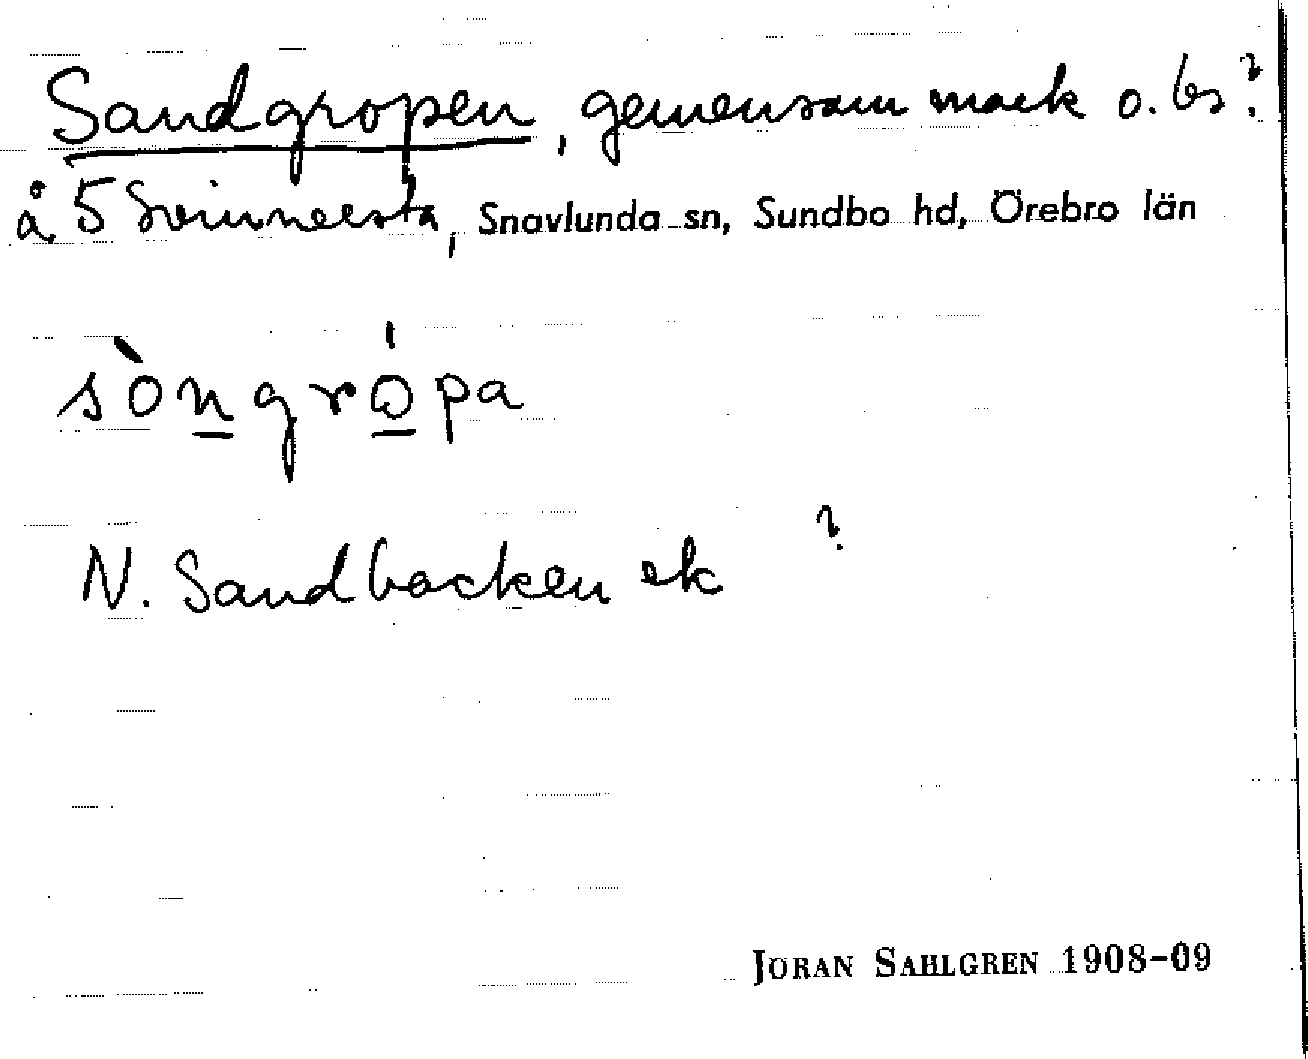 Sandgropen, gemensam mark o. bs?
å 5 Svinnersta, Snavlunda sn, Sundbo hd, Örebro län
sòngrópa
N. Sandbacken ek ?
JÖRAN SAHLGREN 1908-09